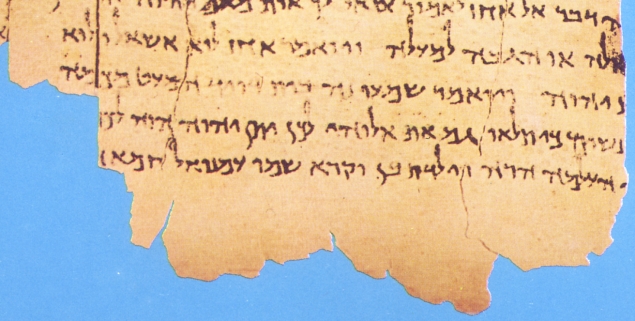 דבר אל אחז לאמור שאל לך אות מעם
או הגבה למעלה ויואמר אחז לוא אשאל ולוא
יהוה ויואמר שמעו נא בית דויד המעט מכמה
כי תלאו גם את אלוהי לכן יתן יהוה
העלמה הרה וילדת בן וקרא שמו עמנואל חמאה